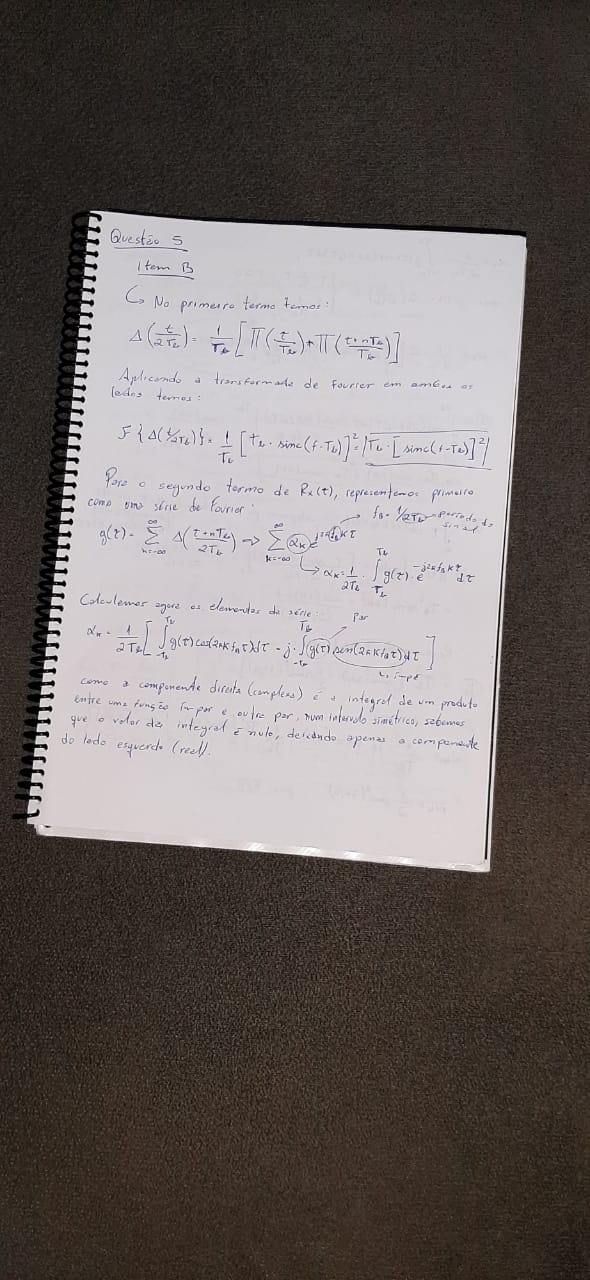 Questão 5
Item B
↳ No primeiro termo temos:
Δ(t/2Tb) = 1/Tb [Π(τ/Tb) * Π(τ+nTb/Tb)]
Aplicando a transformada de Fourier em ambos os
lados temos:
F{Δ(t/2Tb)} = 1/Tb [Tb · sinc(f·Tb)]² = Tb · [sinc(f·Tb)]²
Para o segundo termo de Rx(τ), representemos primeiro
como uma série de Fourier:
fB = 1/2Tb → período do sinal
g(τ) = ∑_{n=-∞}^{∞} Δ(τ+nTb/2Tb) => ∑_{k=-∞}^{∞} αk e^{j2π fB kτ}
↳ αk = 1/2Tb · ∫_{Tb}^{Tb} g(τ) · e^{-j2π fB kτ} dτ
Calculemos agora os elementos da série:
par
αk = 1/2Tb [∫_{-Tb}^{Tb} g(τ) cos(2πk fBτ)dτ - j · ∫_{-Tb}^{Tb} g(τ) sen(2πk fBτ)dτ]
como a componente direita (complexa) é a integral de um produto
entre uma função ímpar e outra par, num intervalo simétrico, sabemos
que o valor da integral é nulo, deixando apenas a componente
do lado esquerdo (real).